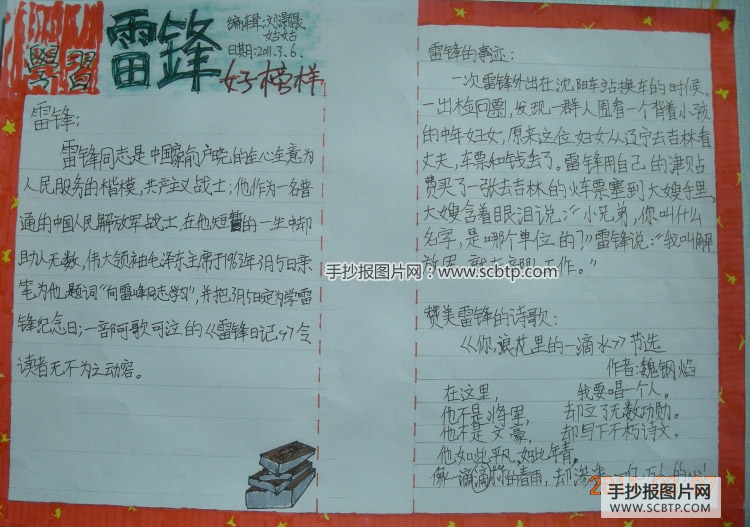 學習
雷锋
好榜样
编辑:刘灏晟
姑姑
日期:2011.3.6.
雷锋:
雷锋同志是中国家俞户晓的全心全意为
人民服务的楷模,共产主义战士;他作为一名普
通的中国人民解放军战士,在他短暂的一生中却
助人无数,伟大领袖毛泽东主席于1963年3月5日亲
笔为他题词“向雷峰同志学习”,并把3月5日定为学雷
锋纪念日;一部可歌可泣的《雷锋日记》令
读者无不为之动容。
雷锋的事迹:
一次雷锋外出在沈阳车站换车的时候,
一出检问票,发现一群人围着一个背着小孩
的中年妇女,原来这位妇女从辽宁去吉林看
丈夫,车票和钱丢了。雷锋用自己的津贴
费买了一张去吉林的火车票塞到大嫂手里,
大嫂含着眼泪说:“小兄弟,你叫什么
名字,是哪个单位的?》雷锋说:“我叫解
放军,就在部队工作。”
手抄报图片网:www.scbtp.com
赞美雷锋的诗歌:
《你,浪花里的一滴水》节选
作者:魏钢焰
在这里, 我要唱一个人。
他不是将军, 却立了无数功勋。
他不是文豪, 却写下不朽诗文。
他如此平凡,如此年青。
像一滴滴的春雨,却渗透
手抄报图片网
WWW.SCBTP.COM